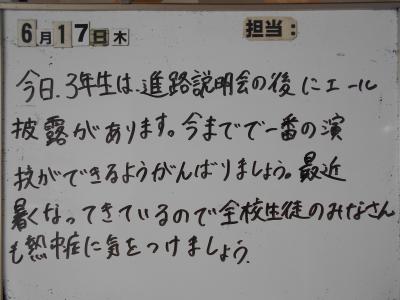 6月17日木 担当:
今日、3年生は、進路説明会の後にエール
披露があります。今までで一番の演
技ができるようがんばりましょう。最近
暑くなってきているので全校生徒のみなさん
も熱中症に気をつけましょう。